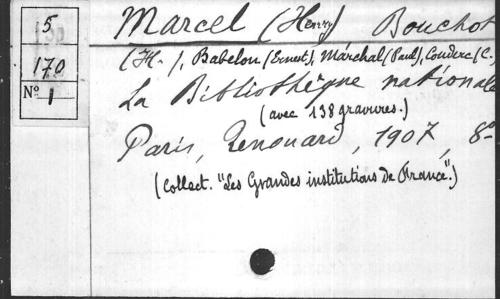 5
170
N° 1
Marcel (Henry) Bouchot
(H.), Babelon (Ernest), Maréchal (Paul), Couderc (C.)
La Bibliothèque nationale
(avec 138 gravures.)
Paris, Renouard, 1907, 8°
(Collect. "Les Grandes institutions de France".)